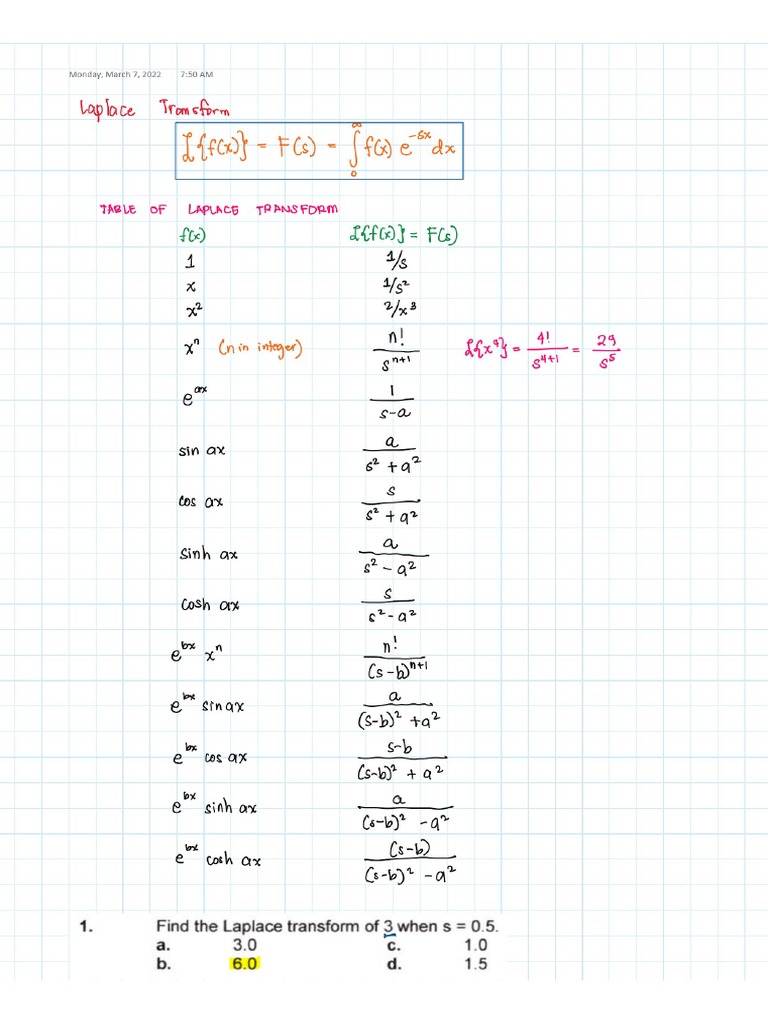 Monday, March 7, 2022 7:50 AM
Laplace Transform
ℒ{f(x)} = F(s) = ∫₀^∞ f(x) e^-sx dx
TABLE OF LAPLACE TRANSFORM
f(x) ℒ{f(x)} = F(s)
1 1/s
x 1/s²
x² 2/x³
xⁿ (n in integer) n!/s^n+1 ℒ{x⁴} = 4!/s^4+1 = 24/s⁵
e^ax 1/s-a
sin ax a/s² + a²
cos ax s/s² + a²
sinh ax a/s² - a²
cosh ax s/s² - a²
e^bx xⁿ n!/(s-b)^n+1
e^bx sin ax a/(s-b)² + a²
e^bx cos ax s-b/(s-b)² + a²
e^bx sinh ax a/(s-b)² - a²
e^bx cosh ax (s-b)/(s-b)² - a²
1. Find the Laplace transform of 3 when s = 0.5.
a. 3.0 c. 1.0
b. 6.0 d. 1.5